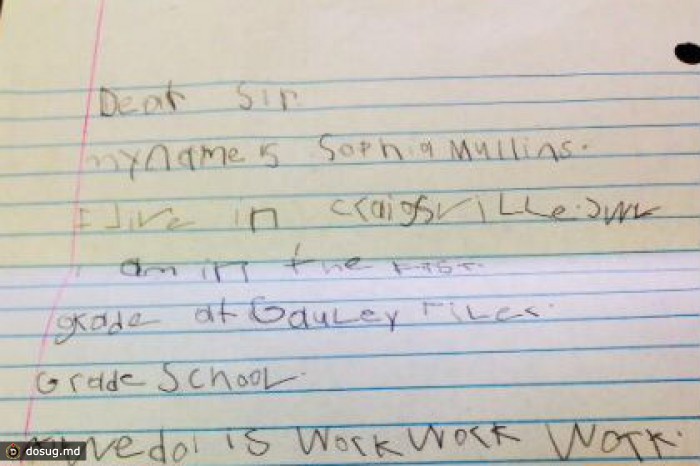 Dear Sir.
my name is Sophia Mullins.
I live in craigsville.
I am in the
grade at Gauley
Grade School.
we do is Work Work Work.
dosug.md